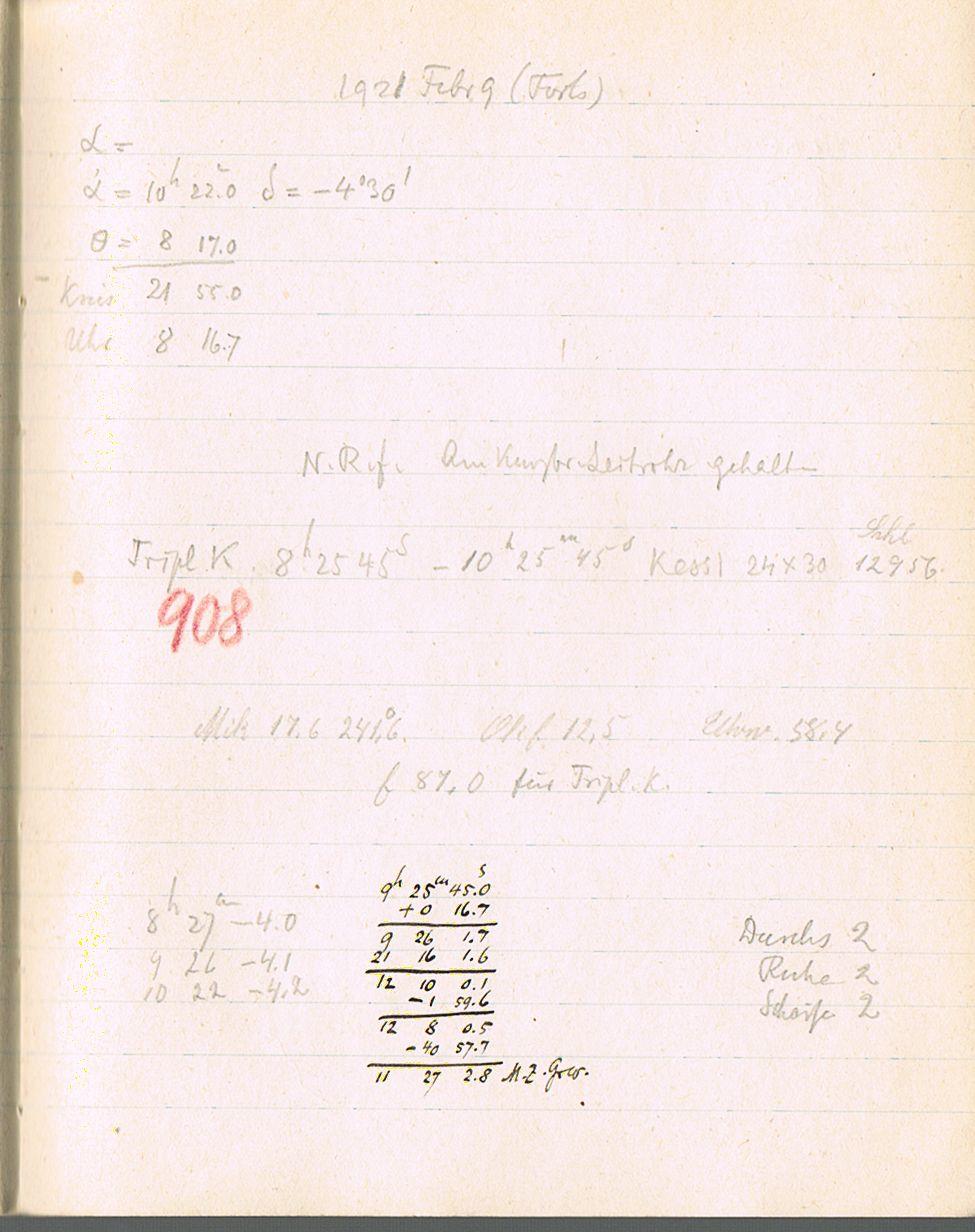 1921 Febr 9 (Forts)
α =
α = 10ʰ 22.0 δ = -4°30'
θ = 8 17.0
Kreis 21 55.0
Uhr 8 16.7
N. Ref. Am Leitrohr gehalten
Tripl. K. 8ʰ 25 45ˢ - 10ʰ 25ᵐ 45ˢ Kessl 24×30 12956.
908
Mik 17.6 241°,6. 12,5 58,4
f 87,0 für Tripl. K.
8ʰ 27ᵐ -4.0
9 26 -4.1
10 22 -4,2
9ʰ 25ᵐ 45.0ˢ
+0 16.7
9 26 1.7
21 16 1.6
12 10 0.1
-1 59.6
12 8 0.5
-40 57.7
11 27 2.8 M.Z. Grw.
Durchs 2
Ruhe 2
Schärfe 2